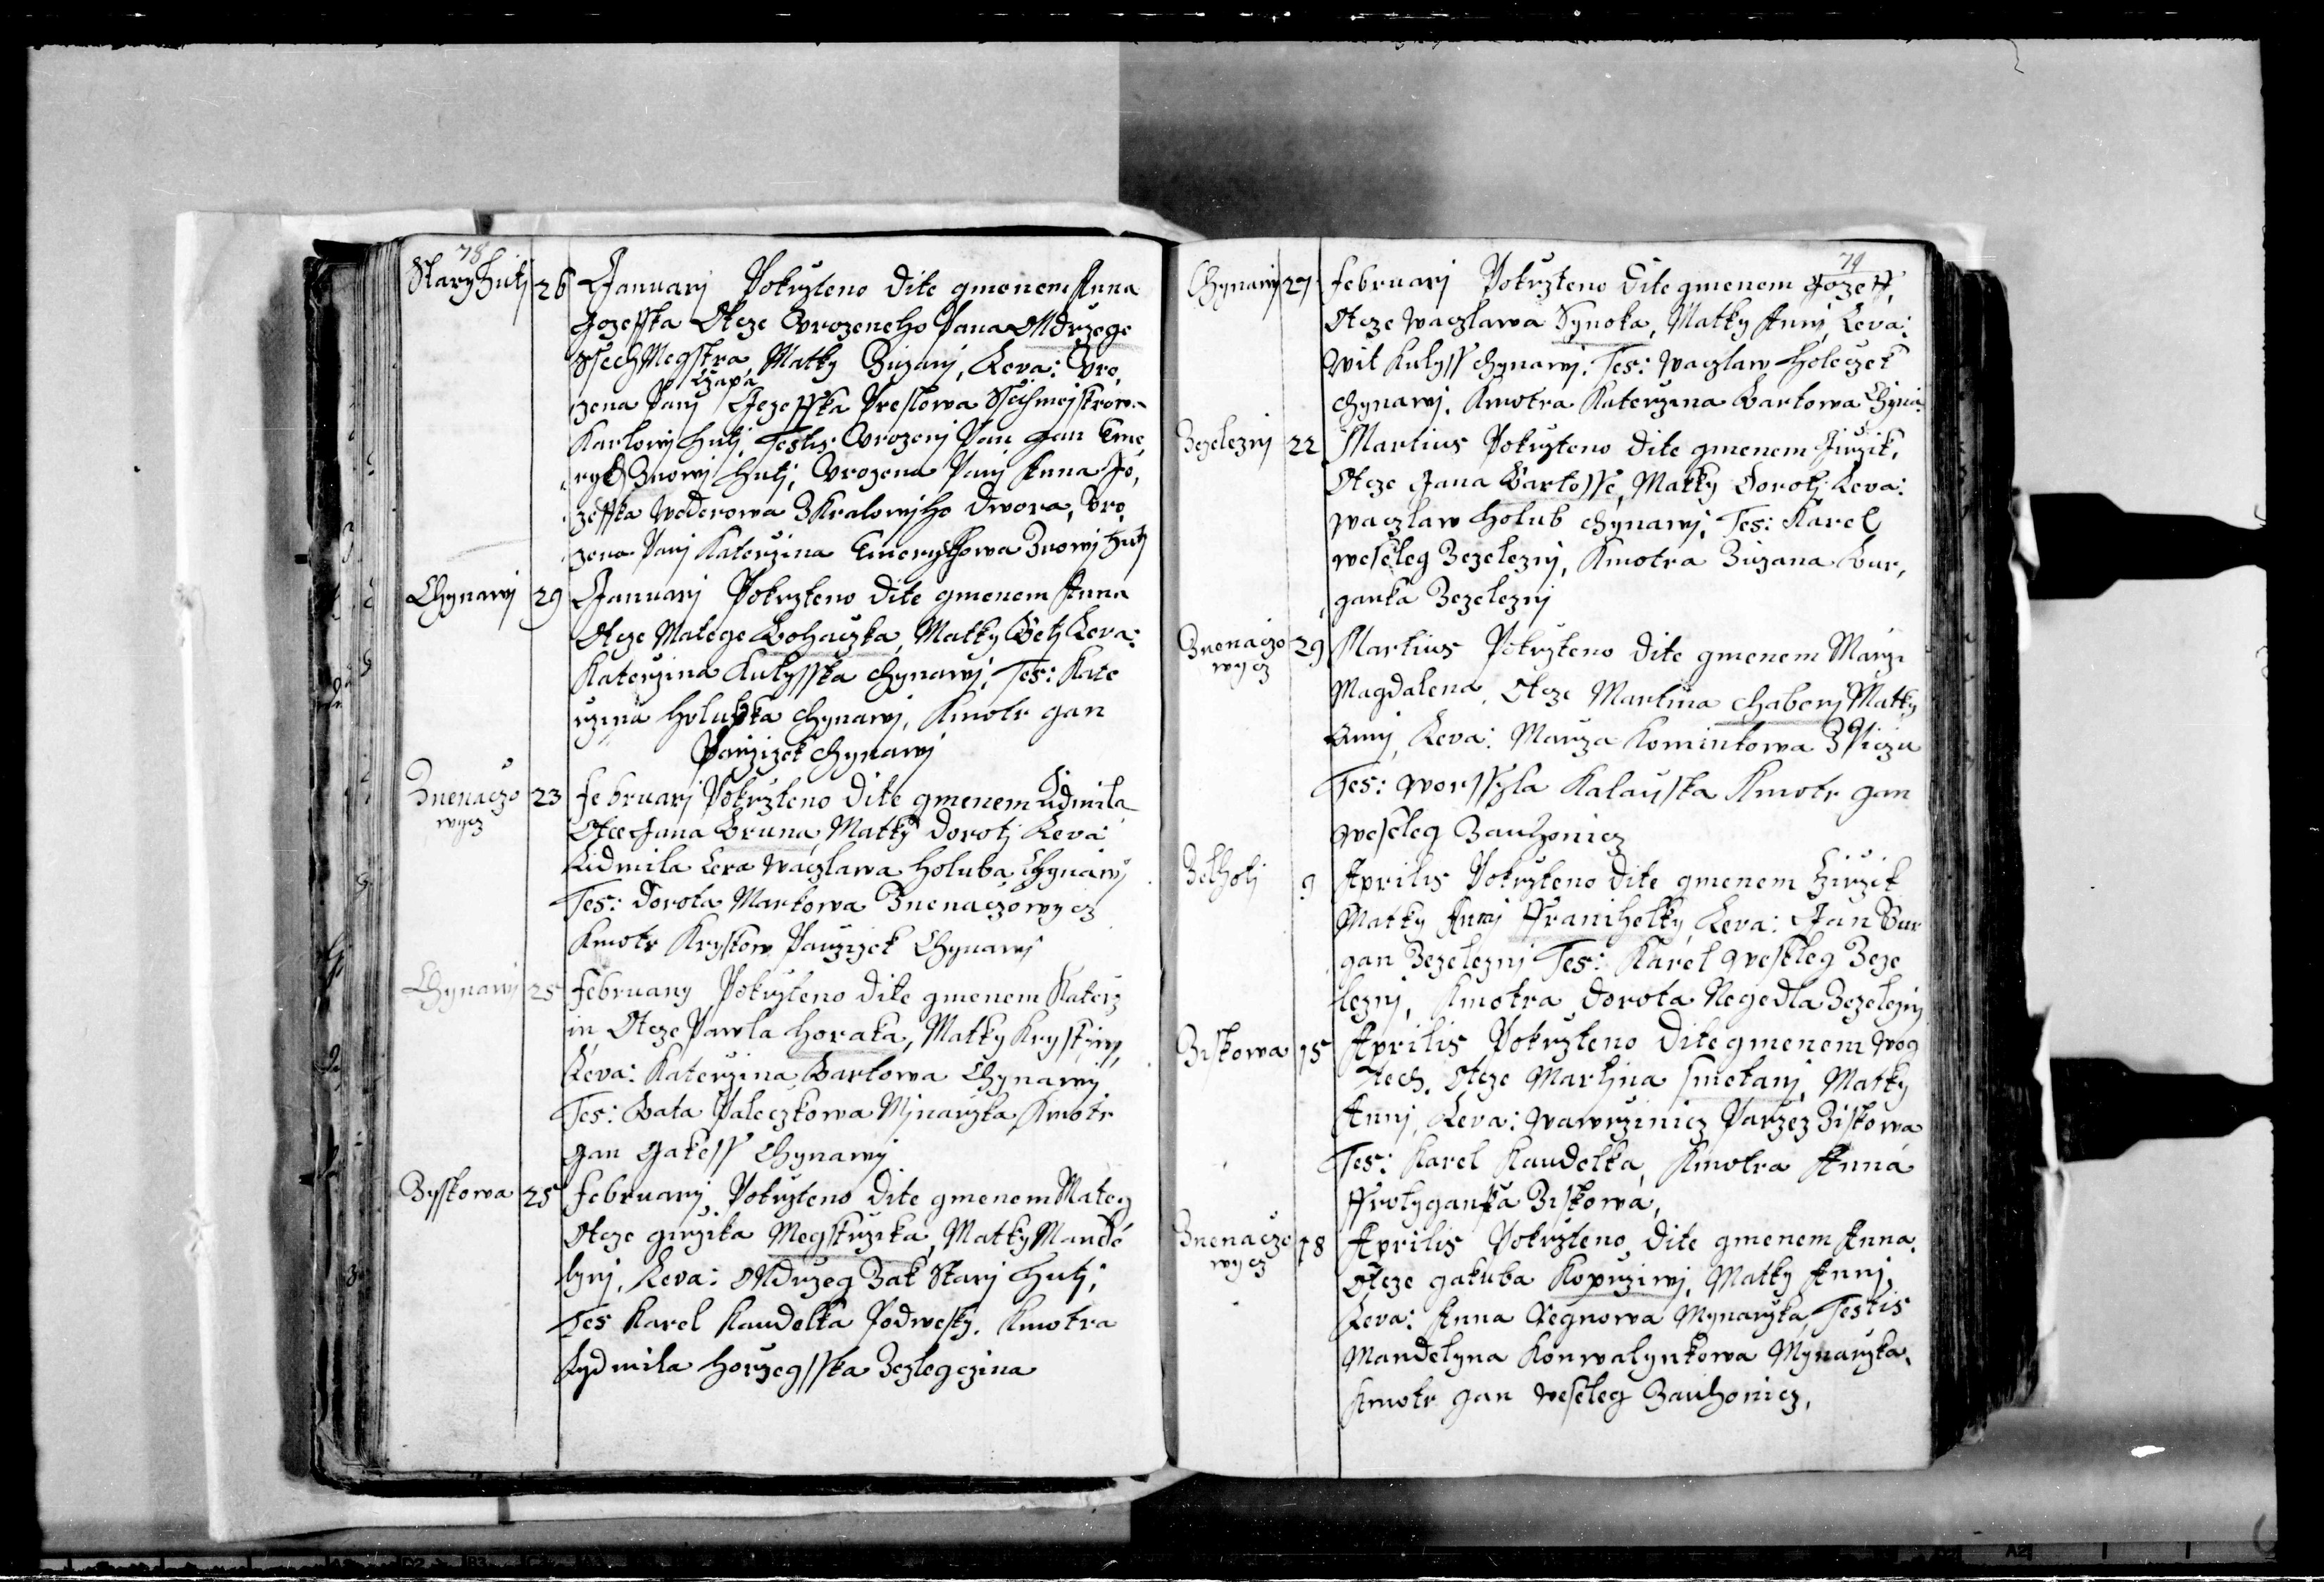 78
Stary Hutj 26 Januarj Pokrzteno dite gmenem Anna
Gozeffka Otcze Vrozeneho Pana Ondrzege
Ssech Megstra, Matky Zuzanj, Leva: Vro,
Czapa
zena Panj Jozeffka Preslowa Ssichmejstrow.
Karlowj Hutj, Testis Vrozenj Pan Jan Eme,
rych Znowj Hutj, Vrozena Panj Anna Jo,
zeffka Wederowa Z Kralowjho Dwora, Vro,
zena Panj Katerzina Emerychowa Znowj Hutj
Chynawj 29 Januarj Pokrzteno dite gmenem Anna
Otcze Matege Bohaczka, Matky Betj Leva:
Katerzina Kulysska Chynawj, Tes: Kate
rzina Holubka Chynawj, Kmotr Gan
Parzizek Chynawj
Znenaczo 23 Februarj Pokrzteno dite gmenem Lidmila
wycz Otce Jana Bruna, Matky Dorotj Leva:
Lidmila Cera Waczlawa Holuba Chynawj
Tes: Dorota Markowa Znenaczowycz
Kmotr Krystow Parzizek Chynawj
Chynawj 25 February Pokrzteno dite gmenem Katerz
in, Otcze Pawla Horaka, Matky Krystiny,
Leva: Katerzina Bartowa Chynawj
Tes: Bata Paleczkowa Mjnarzka Kmotr
Gan Gakess Chynawj
Zyskowa 25 Februarj Pokrzteno dite gmenem Mateg
Otcze Girzika Megstrzika, Matky Mande
lynj, Leva: Ondrzeg Zak Starj Hutj,
Tes Karel Kaudelka Podwesky. Kmotra
Lydmila Horzegsska Zezlegczina
79
Chynawj 27 Februarj Pokrzteno dite gmenem Jozeff,
Otcze Waczlawa Synoka, Matky Annj, Leva:
Wit Kulyss Chynawj. Tes: Waczlaw Holeczek
Chynawj. Kmotra Katerzina Bartowa Chyna:
Zezeleznj 22 Martius Pokrzteno dite gmenem Jirzik,
Otcze Jana Bartosse, Matky Dorotj Leva:
Waczlaw Holub Chynawj, Tes: Karel
Weseleg Zezeleznj, Kmotra Zuzana Bur,
ganka Zezeleznj
Znenaczo 29 Martius Pokrzteno dite gmenem Marz:
wycz Magdalena, Otcze Martina Chaberj Matky
Annj, Leva: Manza Kominkowa
Tes: Worssyla Kalauska Kmotr Gan
Weseleg Zauhonicz
Zelhotj 9 Aprilis Pokrzteno dite gmenem Jirzik
Matky Annj Franihelky, Leva: Jan Bur
gan Zezeleznj Tes: Karel Weseleg Zeze
leznj, Kmotra Dorota Negedla Zezeleznj
Ziskowa 15 Aprilis Pokrzteno dite gmenem Wog
tech. Otcze Martina Smetanj, Matky
Annj, Leva: Wawrzinicz Parzez Ziskowa
Tes: Karel Kaudelka, Kmotra Anna
Frolyganka Ziskowa,
Znenaczo 18 Aprilis Pokrzteno dite gmenem Anna,
wycz Otcze Gakuba Koprziwj, Matky Annj,
Leva: Anna Regnowa Mynarzka, Testis
Mandelyna Konwalynkowa Mynarzka.
Kmotr Gan Weseleg Zauhonicz,